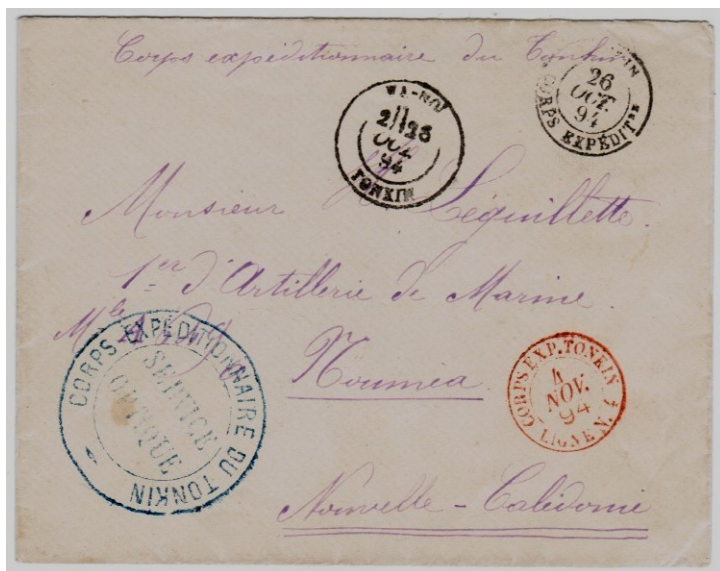 Corps expéditionnaire du Tonkin
TONKIN
26
OCT.
94
CORPS EXPÉDIT
2
25
OCT.
94
TONKIN
Monsieur Léguillette
1er d'Artillerie de Marine.
Mle
Nouméa.
CORPS EXPÉDITIONNAIRE DU TONKIN
SERVICE
OPTIQUE
CORPS EXP. TONKIN
4
NOV.
94
LIGNE N. 4
Nouvelle - Calédonie